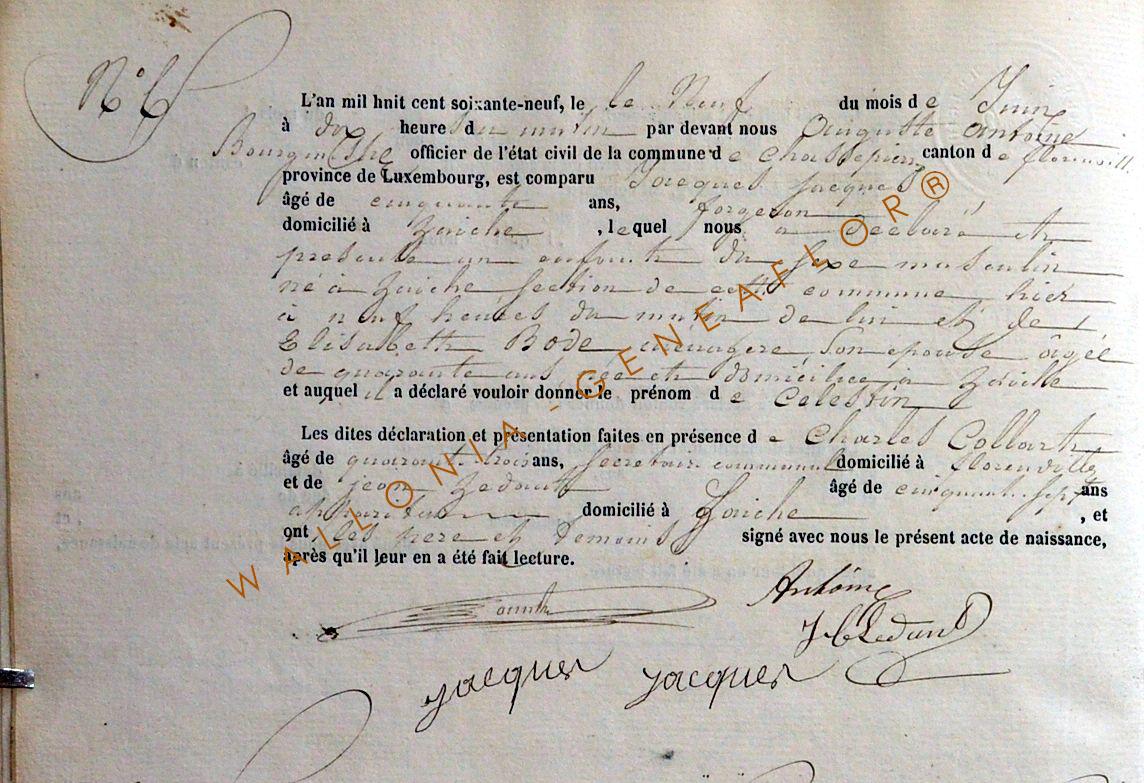 N° 6
L'an mil huit cent soixante-neuf, le le Neuf du mois de Juin
à dix heure du matin par devant nous Auguste Antoine
Bourgmestre officier de l'état civil de la commune de Chassepierre canton de florenville
province de Luxembourg, est comparu Jacques Jacques
âgé de cinquante ans, forgeron
domicilié à Laiche, lequel nous a déclaré et
presenté un enfant du sexe masculin
né à Laiche section de cette commune hier
à neuf heures du matin de lui et de
Elisabeth Bode menagere, son epouse âgée
de quarante ans née et domiciliée à Laiche
et auquel il a déclaré vouloir donner le prénom de Celestin
Les dites déclaration et présentation faites en présence de Charles Collart
âgé de quarante trois ans, secretaire communal domicilié à florenville
et de jean âgé de cinquante sept ans
domicilié à Laiche, et
ont les pere et temoins signé avec nous le présent acte de naissance,
après qu'il leur en a été fait lecture.
Antoine
jacques jacques
WALLONIA - GENEAFLOR®